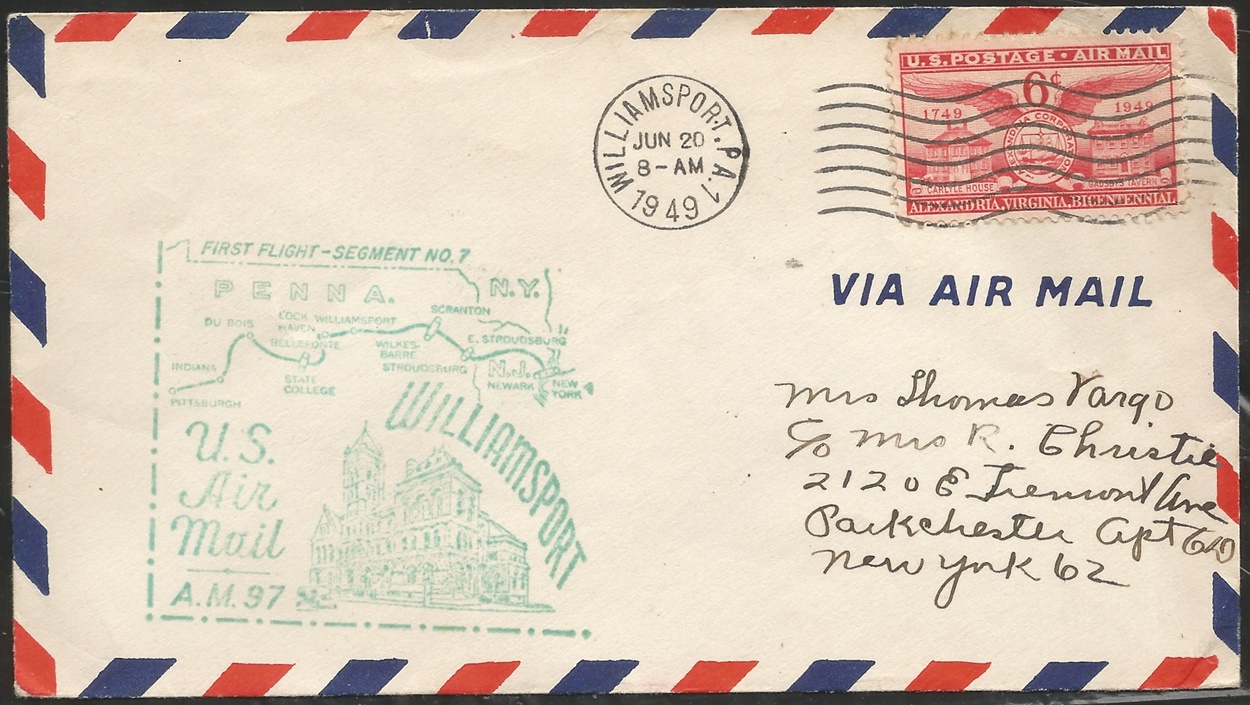 U.S. POSTAGE • AIR MAIL
6¢
1749
1949
ALEXANDRIA CORPORATION
CARLYLE HOUSE
GADSBYS TAVERN
ALEXANDRIA, VIRGINIA, BICENTENNIAL
WILLIAMSPORT. PA. 1
JUN 20
8-AM
1949
VIA AIR MAIL
FIRST FLIGHT-SEGMENT NO. 7
PENNA.
N.Y.
SCRANTON
DU BOIS
LOCK HAVEN
WILLIAMSPORT
BELLEFONTE
WILKES-BARRE
E. STROUDSBURG
STROUDSBURG
INDIANA
STATE COLLEGE
N.J.
NEWARK
NEW YORK
PITTSBURGH
WILLIAMSPORT
U.S.
Air
Mail
A.M. 97
Mrs Thomas Vargo
c/o Mrs R. Christie
2120 E Tremont Ave
Parkchester Apt
New York 62